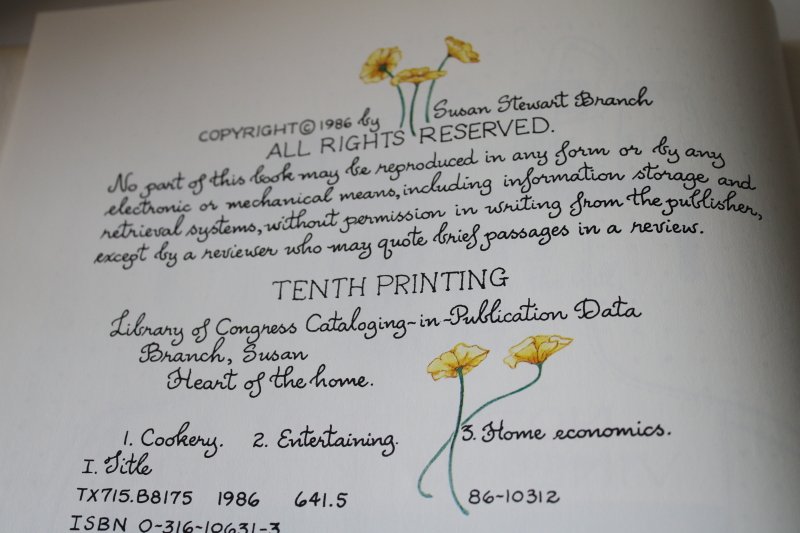 COPYRIGHT © 1986 by Susan Stewart Branch
ALL RIGHTS RESERVED.
No part of this book may be reproduced in any form or by any
electronic or mechanical means, including information storage and
retrieval systems, without permission in writing from the publisher,
except by a reviewer who may quote brief passages in a review.
TENTH PRINTING
Library of Congress Cataloging-in-Publication Data
Branch, Susan
Heart of the home.
1. Cookery. 2. Entertaining. 3. Home economics.
I. Title
TX715.B8175 1986 641.5 86-10312
ISBN 0-316-10631-3